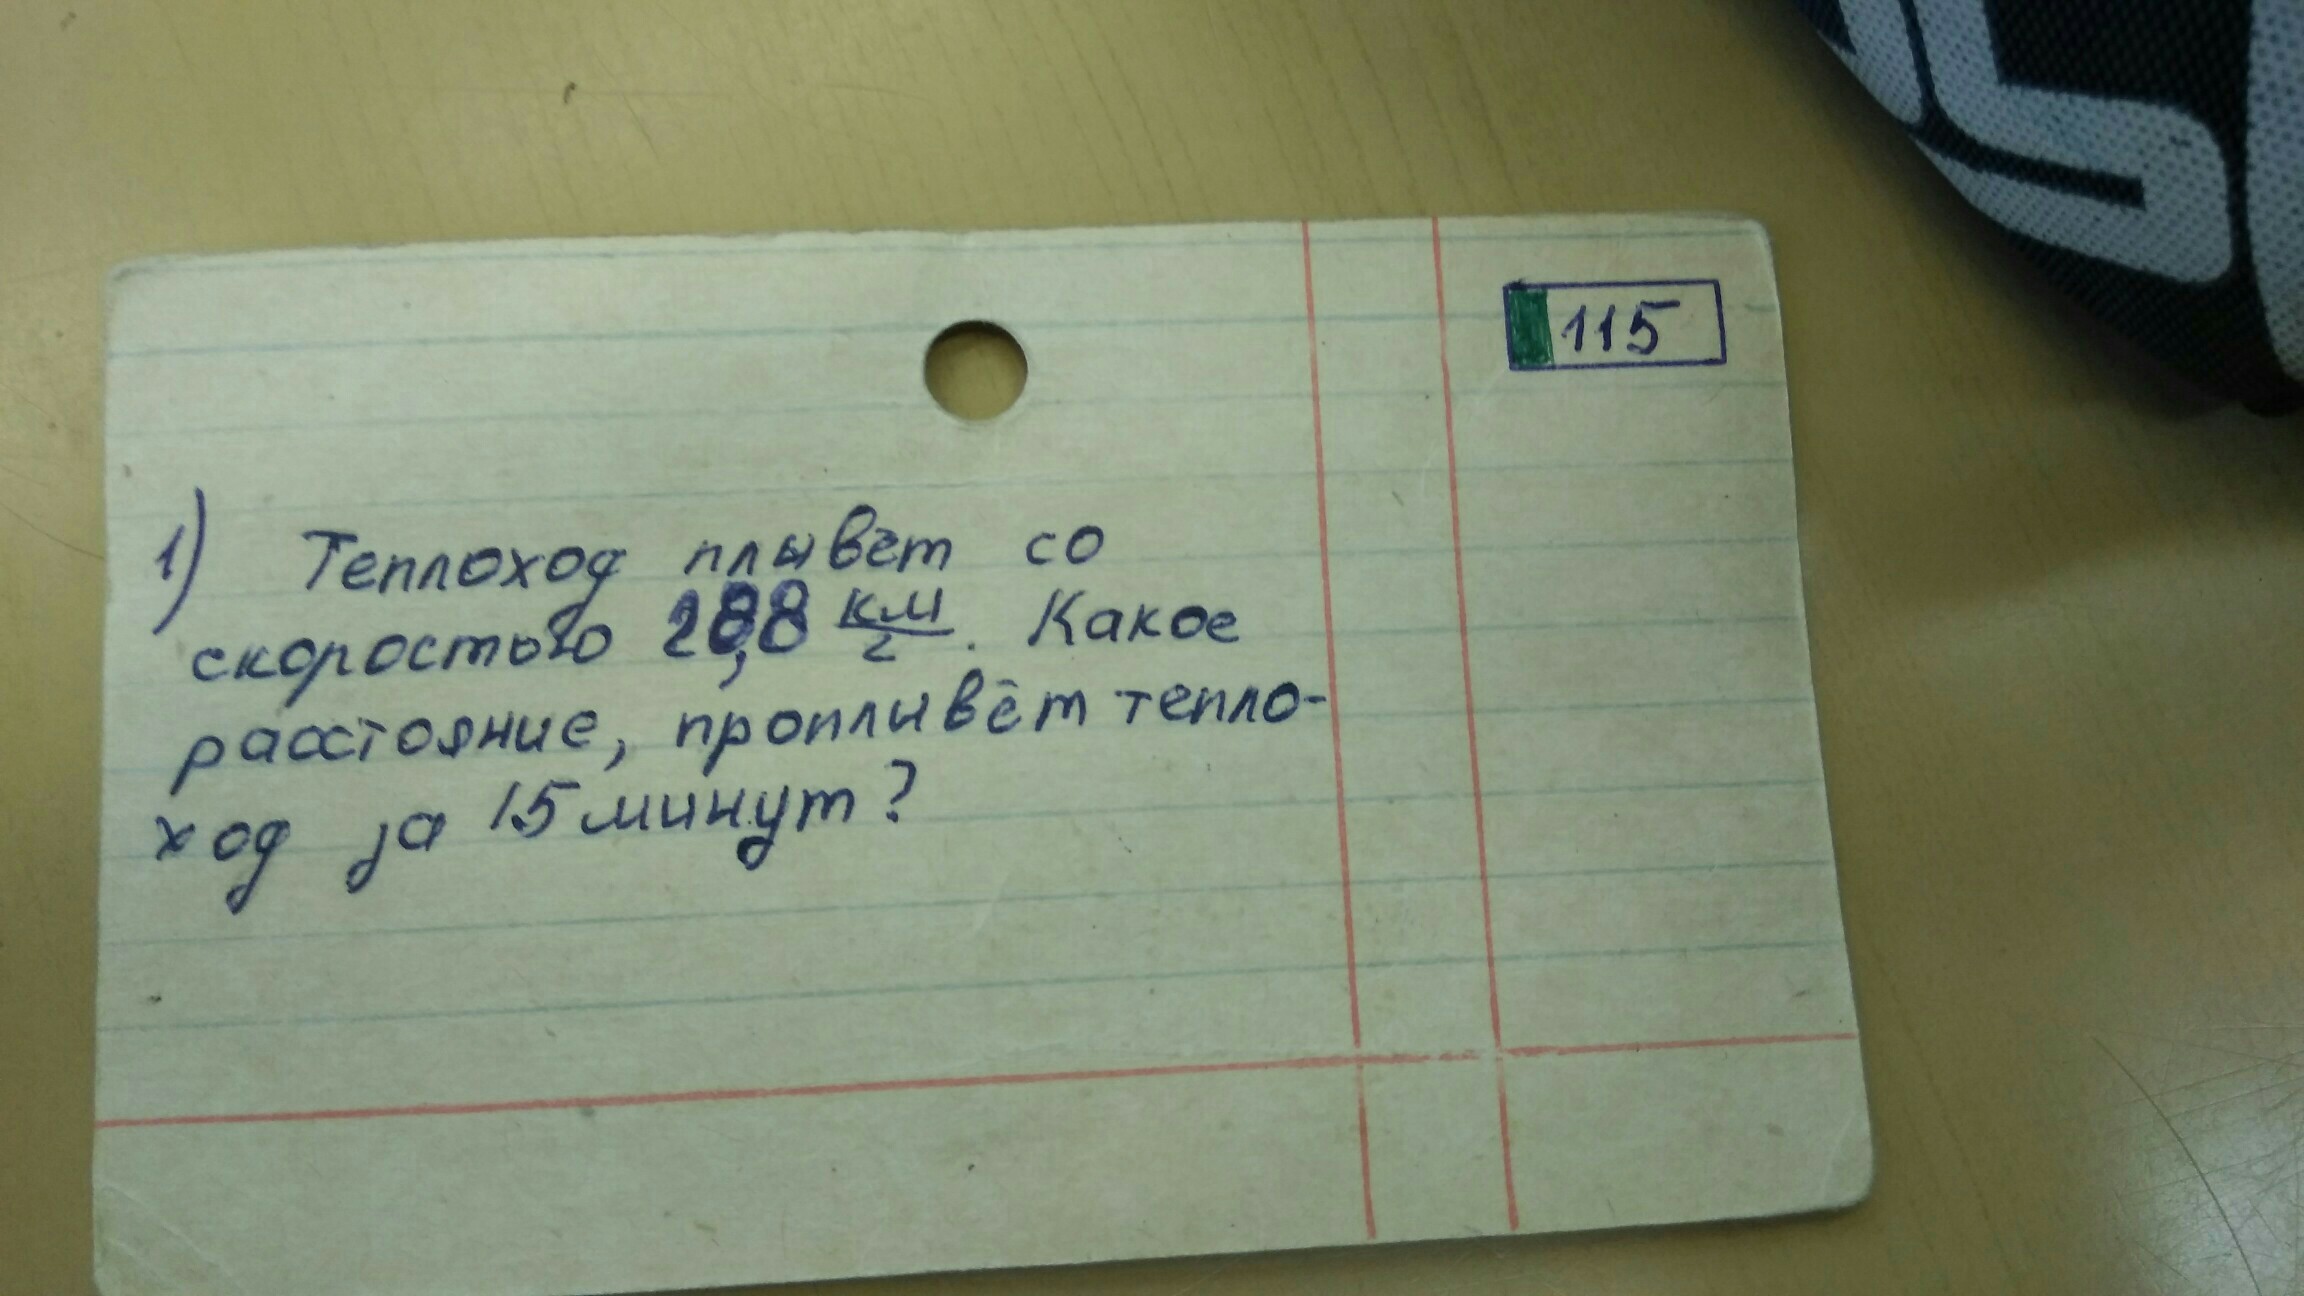 115
1) Теплоход плывёт со
скоростью 28,8 км/г. Какое
расстояние, проплывёт тепло-
ход за 15 минут?